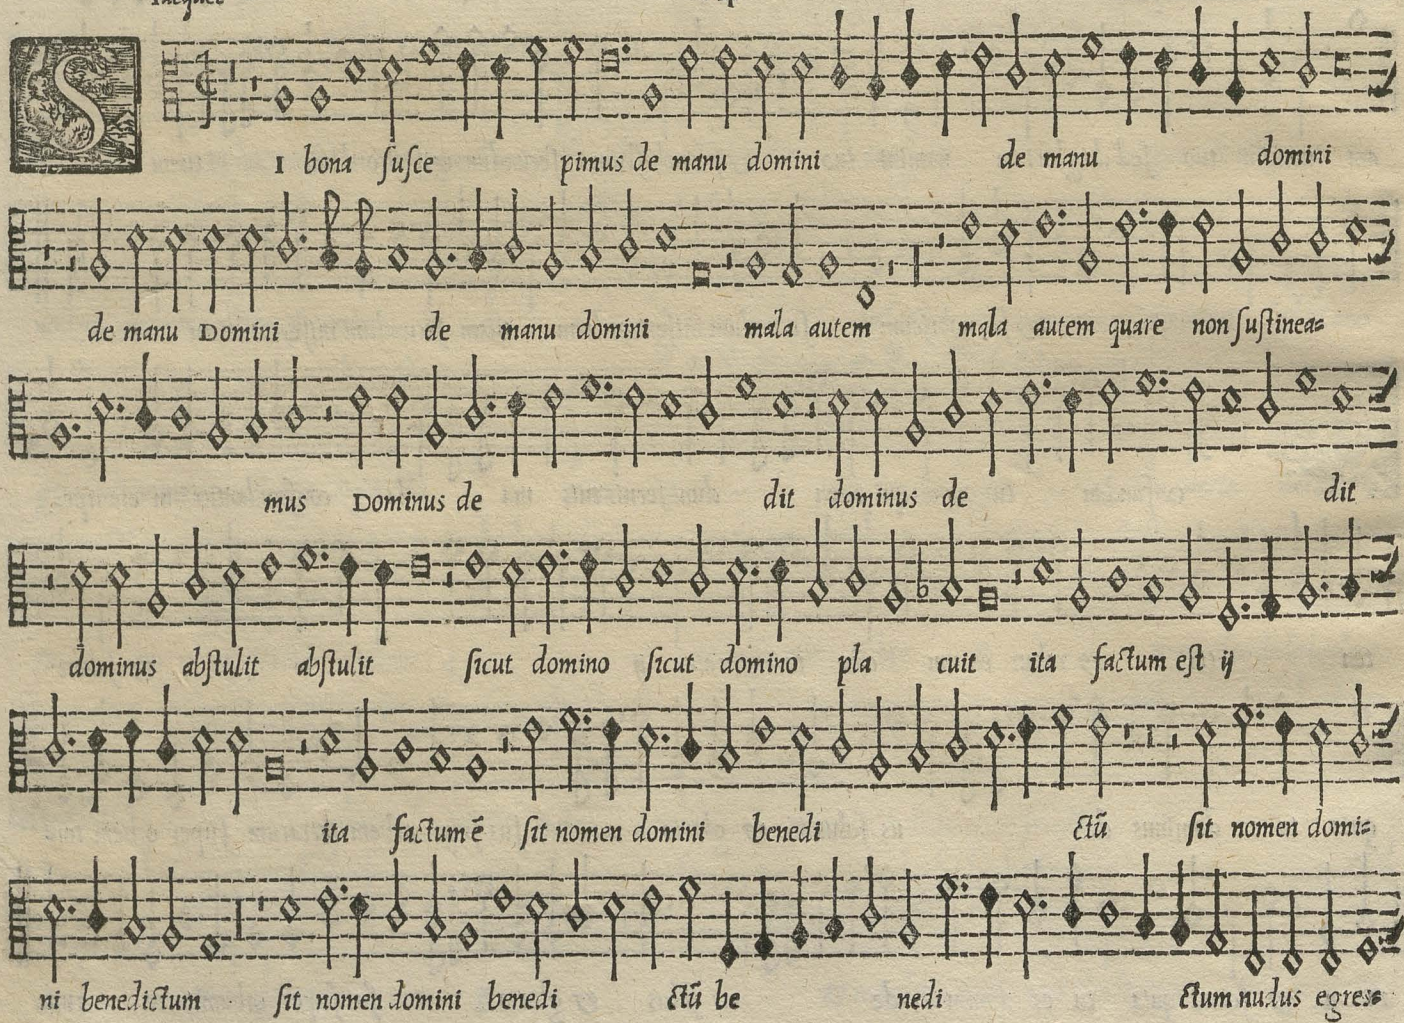 Iacquet
SI bona ſuſce pimus de manu domini de manu domini
de manu Domini de manu domini mala autem mala autem quare non ſuſtinea=
mus Dominus de dit dominus de dit
dominus abſtulit abſtulit ſicut domino ſicut domino pla cuit ita factum eſt ij
ita factum ē ſit nomen domini benedi ctū ſit nomen domi=
ni benedictum ſit nomen domini benedi ctū be nedi ctum nudus egreſ=